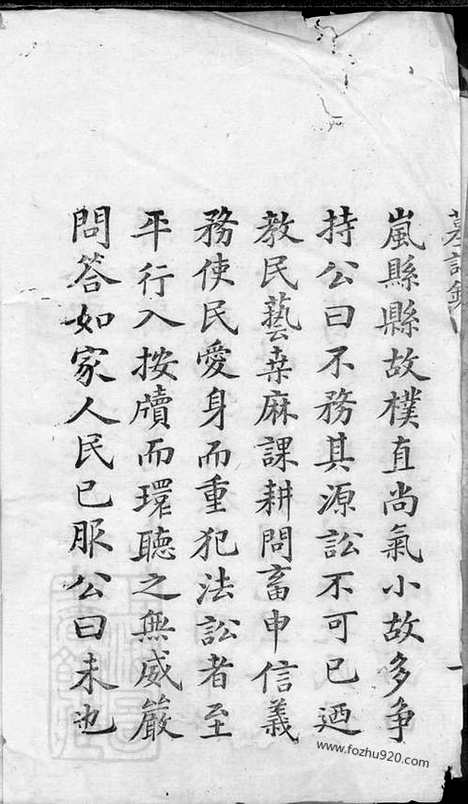 墓誌銘
嵐縣縣故樸直尚氣小故多争
持公曰不務其源訟不可已迺
教民藝桒麻課耕問畜申信義
務使民愛身而重犯法訟者至
平行入按牘而環聽之無威嚴
問答如家人民已服公曰未也
www.fozhu920.com